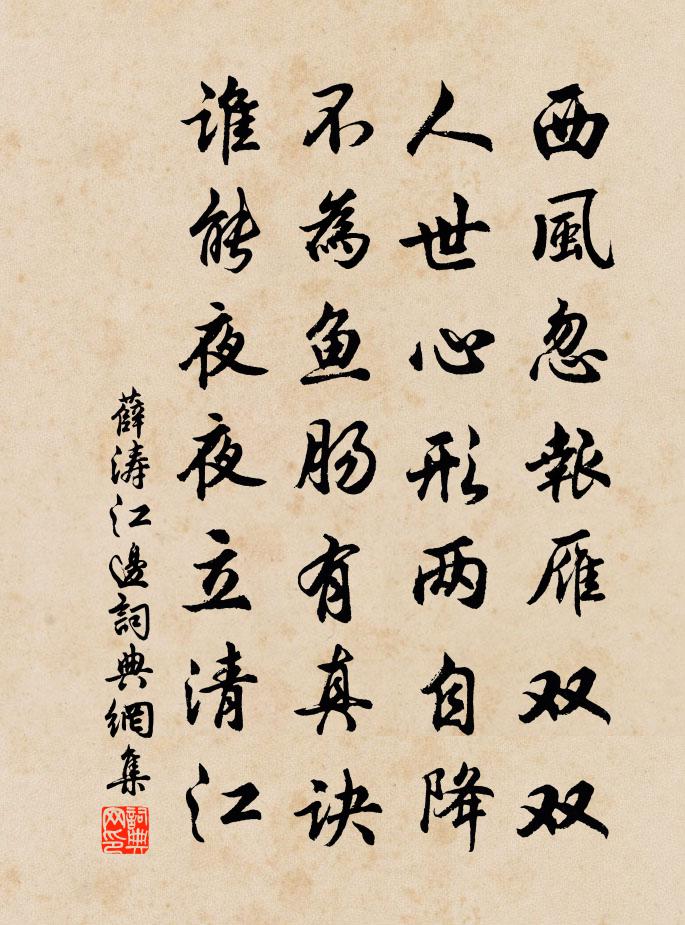 西風忽報雁双双
人世心形两自降
不為鱼肠有真诀
谁能夜夜立清江
薛涛江邊詞典網集
詞典网印